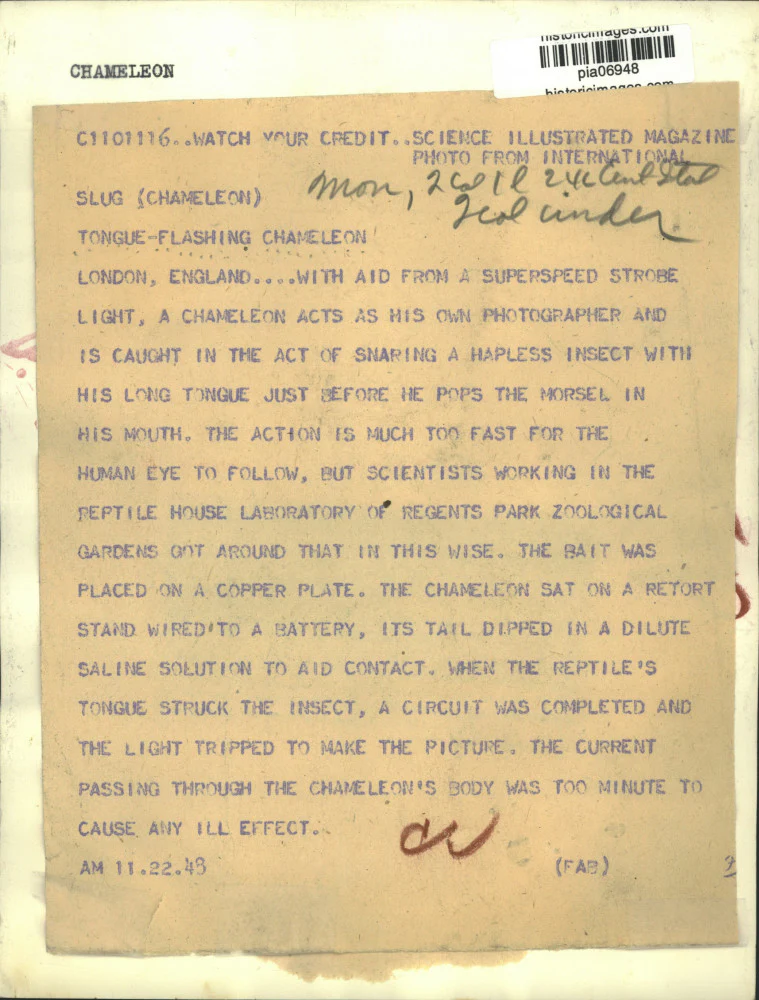 historicimages.com
pia06948
historicimages.com
CHAMELEON
C1101116..WATCH YOUR CREDIT..SCIENCE ILLUSTRATED MAGAZINE
PHOTO FROM INTERNATIONAL
Mon, 2 col
SLUG (CHAMELEON)
2 col under
TONGUE-FLASHING CHAMELEON
LONDON, ENGLAND....WITH AID FROM A SUPERSPEED STROBE
LIGHT, A CHAMELEON ACTS AS HIS OWN PHOTOGRAPHER AND
IS CAUGHT IN THE ACT OF SNARING A HAPLESS INSECT WITH
HIS LONG TONGUE JUST BEFORE HE POPS THE MORSEL IN
HIS MOUTH. THE ACTION IS MUCH TOO FAST FOR THE
HUMAN EYE TO FOLLOW, BUT SCIENTISTS WORKING IN THE
REPTILE HOUSE LABORATORY OF REGENTS PARK ZOOLOGICAL
GARDENS GOT AROUND THAT IN THIS WISE. THE BAIT WAS
PLACED ON A COPPER PLATE. THE CHAMELEON SAT ON A RETORT
STAND WIRED TO A BATTERY, ITS TAIL DIPPED IN A DILUTE
SALINE SOLUTION TO AID CONTACT. WHEN THE REPTILE'S
TONGUE STRUCK THE INSECT, A CIRCUIT WAS COMPLETED AND
THE LIGHT TRIPPED TO MAKE THE PICTURE. THE CURRENT
PASSING THROUGH THE CHAMELEON'S BODY WAS TOO MINUTE TO
CAUSE ANY ILL EFFECT.
AM 11.22.48 (FAB)